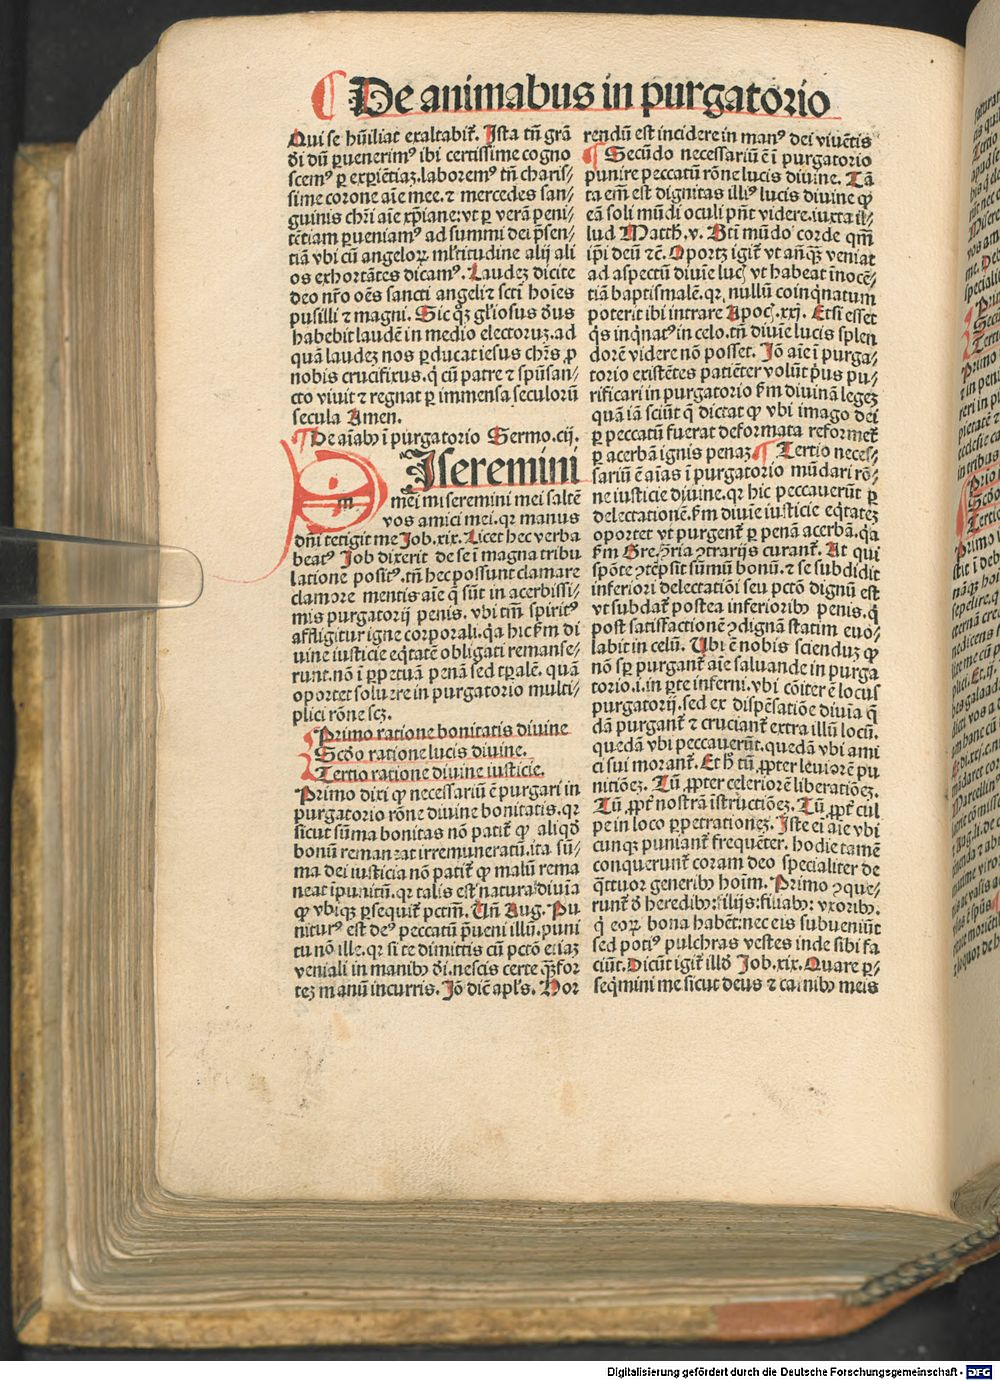 De animabus in purgatorio
Qui se hũiliat exaltabiť. Ista tñ grã
ði dũ ꝑuenerimꝰ ibi certissime cogno
scemꝰ ꝑ exꝑiẽtiaꝫ.laboremꝰ tñ charis⸗
sime corone aĩe mee.⁊ mercedes san⸗
guinis chři aĩe xp̃iane:vt ꝑ verã peni⸗
tẽtiam ꝑueniamꝰ ad summi dei p̃sen⸗
tiã vbi cũ angeloꝝ mĺtitudine alij ali
os exhortãtes dicamꝰ. Laudeꝫ dicite
deo nřo oẽs sancti angeli ⁊ scti hoĩes
pusilli ⁊ magni. Sic qꝫ gl̃iosus ðus
habebit laudẽ in medio electoruꝫ.ad
quã laudeꝫ nos ꝑducat iesus chřs ꝓ
nobis crucifixus.q̇ cũ patre ⁊ spũsan⸗
cto viuit ⁊ regnat ꝑ immensa seculorũ
secula Amen.
De aĩabꝰ ĩ purgatorio Sermo.cij.
M Iseremini
mei miseremini mei saltẽ
vos amici mei.qꝛ manus
dñi tetigit me Job.xix. Licet hec verba
beatꝰ Job dixerit de se ĩ magna tribu
latione positꝰ.tñ hec possunt clamare
clamore mentis aĩe q̃ sũt in acerbissi⸗
mis purgatorij penis. vbi tm̃ spiritꝰ
affligitur igne corporali.q̇a hic ẜm di
uine iusticie eq̇tatẽ obligati remanse⸗
runt.nõ ĩ ꝑpetuã penã sed tꝑalẽ. quã
oportet soluere in purgatorio multi⸗
plici rõne scꝫ.
Primo ratione bonitatis diuine
Scðo ratione lucis diuine.
Tertio ratione diuine iusticie.
Primo dixi ꝙ necessariũ ẽ purgari in
purgatorio rõne diuine bonitatis.qꝛ
sicut sũma bonitas nõ patiť ꝙ aliqð
bonũ remaneat irremuneratũ.ita sũ⸗
ma dei iusticia nõ patiť ꝙ malũ rema
neat ĩpunitũ.qꝛ talis est natura diuĩa
ꝙ vbiqꝫ ꝑsequiť pctm̃. Uñ Aug. Pu
niturꝰ est deꝰ peccatũ p̃ueni illũ.puni
tu nõ ille.qꝛ si te dimittis cũ pctõ etiaꝫ
veniali in manibꝰ ði.nescis certe q̃ꝫ for
teꝫ manũ incurris. Jõ diẽ apl̃s. Hor
rendũ est incidere in manꝰ dei viuẽtis
Secũdo necessariũ ẽ ĩ purgatorio
punire peccatũ rõne lucis diuine. Tã
ta em̃ est dignitas illiꝰ lucis diuine ꝙ
eã soli mũdi oculi pñt videre.iuxta il⸗
lud Matth.v. Bt̃i mũdo corde qm̃
ip̃i deũ ⁊č. Oportꝫ igiť vt añqꝫ veniat
ad aspectũ diuĩe luc̣ vt habeat ĩnocẽ⸗
tiã baptismalẽ.qꝛ nullũ coinq̇natum
poterit ibi intrare Apoc̣.xxj. Etsi esset
q̇s inq̇natꝰ in celo.tñ diuĩe lucis splen
dorẽ videre nõ posset. Jõ aĩe ĩ purga⸗
torio existẽtes patiẽter volũt pꝰius pu⸗
rificari in purgatorio ẜm diuinã legeꝫ
quã iã sciũt q̃ dictat ꝙ vbi imago dei
ꝑ peccatũ fuerat deformata reformeť
ꝑ acerbã ignis penaꝫ. Tertio neces⸗
sariũ ẽ aĩas ĩ purgatorio mũdari rõ⸗
ne iusticie diuine.qꝛ hic peccauerũt ꝑ
delectationẽ.ẜm diuĩe iusticie eq̇tateꝫ
oportet vt purgent ꝑ penã acerbã.q̇a
ẜm Gre.ↄ̃ria ↄtrarijs curanť. At qui
spõte ↄtẽpsit sũmũ bonũ.⁊ se subdidit
inferiori delectatiõi seu pctõ dignũ est
vt subdať postea inferioribꝰ penis.q̇
post satisfactionẽ ↄdignã statim euo⸗
labit in celũ. Ubi ẽ nobis sciendũ ꝙ
nõ sꝑ purganť aĩe saluande in purga
torio.i.in ꝑte inferni.vbi cõiter ẽ locus
purgatorij.sed ex dispẽsatiõe diuĩa q̃
dã purganť ⁊ crucianť extra illũ locũ.
quedã vbi peccauerũt.quedã vbi ami
ci sui moranť. Et h̃ tũ ꝓpter leuiorẽ pu
nitiõeꝫ. Tũ ꝓpter celeriorẽ liberatiõeꝫ.
Tũ ꝓpť nostrã ĩstructiõeꝫ. Tũ ꝓpť cul
pe in loco ꝑpetrationeꝫ. Iste ei aĩe vbi
cunqꝫ punianť frequẽter. hodie tamẽ
conquerunť coram deo specialiter de
q̃ttuor generibꝰ hoĩm. Primo ↄque⸗
runť ð heredibꝰ:filijs:filiabꝰ: vxoribꝰ.
q̇ eoꝝ bona habẽt:nec eis subueniũt
sed potiꝰ pulchras vestes inde sibi fa
ciũt. Dicũt igiť illð Job.xix. Quare ꝑ⸗
seq̇mini me sicut deus ⁊ carnibꝰ meis
Digitalisierung gefördert durch die Deutsche Forschungsgemeinschaft - DFG